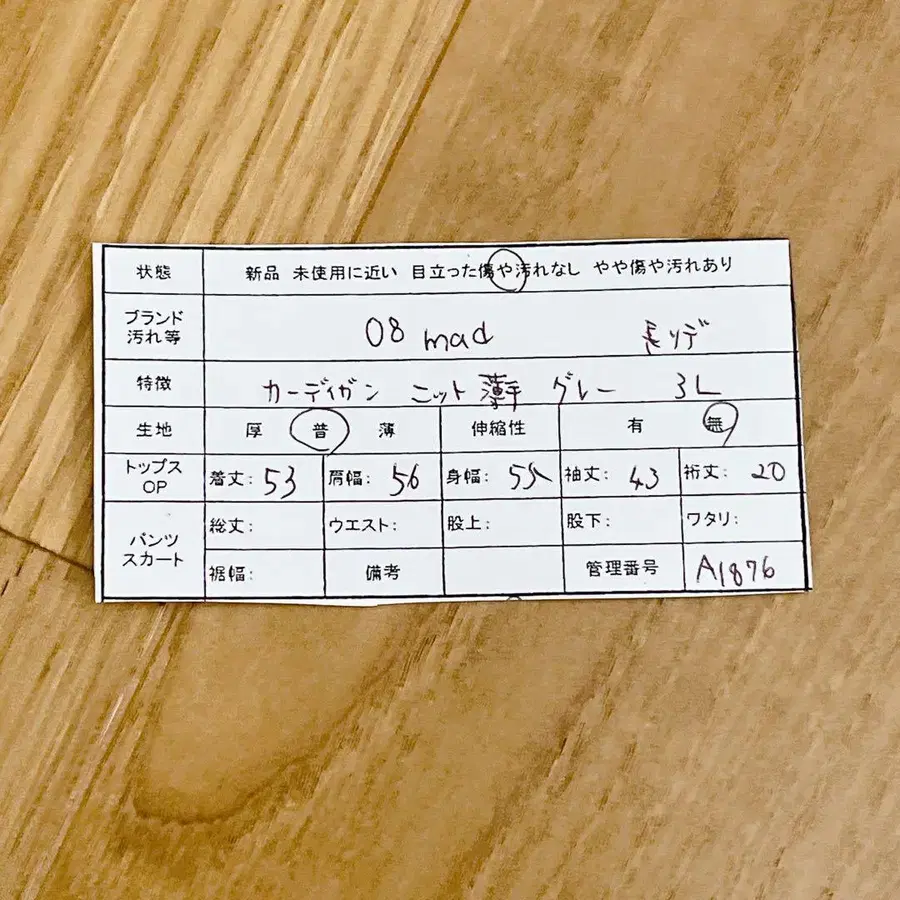 状態 新品 未使用に近い 目立った傷や汚れなし やや傷や汚れあり
ブランド
汚れ等 08 mad 長リデ
特徴 カーディガン ニット 薄手 グレー 3L
生地 厚 普 薄 伸縮性 有 無
トップス
OP 着丈: 53 肩幅: 56 身幅: 袖丈: 43 裄丈: 20
パンツ
スカート 総丈: ウエスト: 股上: 股下: ワタリ:
裾幅: 備考 管理番号 A1876